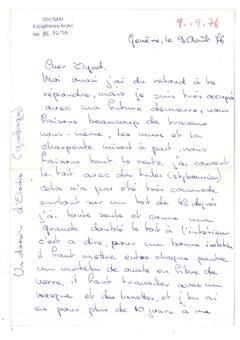 TDV ISAM
Kütüphanesi Arşivi
No
9..9.76
Genève, le 9 Août 76
Cher Ziyad.
Moi aussi j'ai du retard à te
répondre, mais je suis très occupé
avec ma future demeure, nous
faisons beaucoup de travaux
nous-même, les murs et la
charpente misent à part, nous
faisons tout le reste, j'ai couvert
le toit avec des tuiles
cela n'a pas été très commode
surtout sur un toit de 42 degrés
j'ai toute seule et comme une
grande doublé le toit à l'intérieur
c'est a dire, pour une bonne isolation
il faut mettre entre chaque poutre
un matelas de ouate en fibre de
verre, il faut travailler avec un
masque et des lunettes, et j'en ai
eu pour plus de 10 jours à me
Un dessin d'Elodie